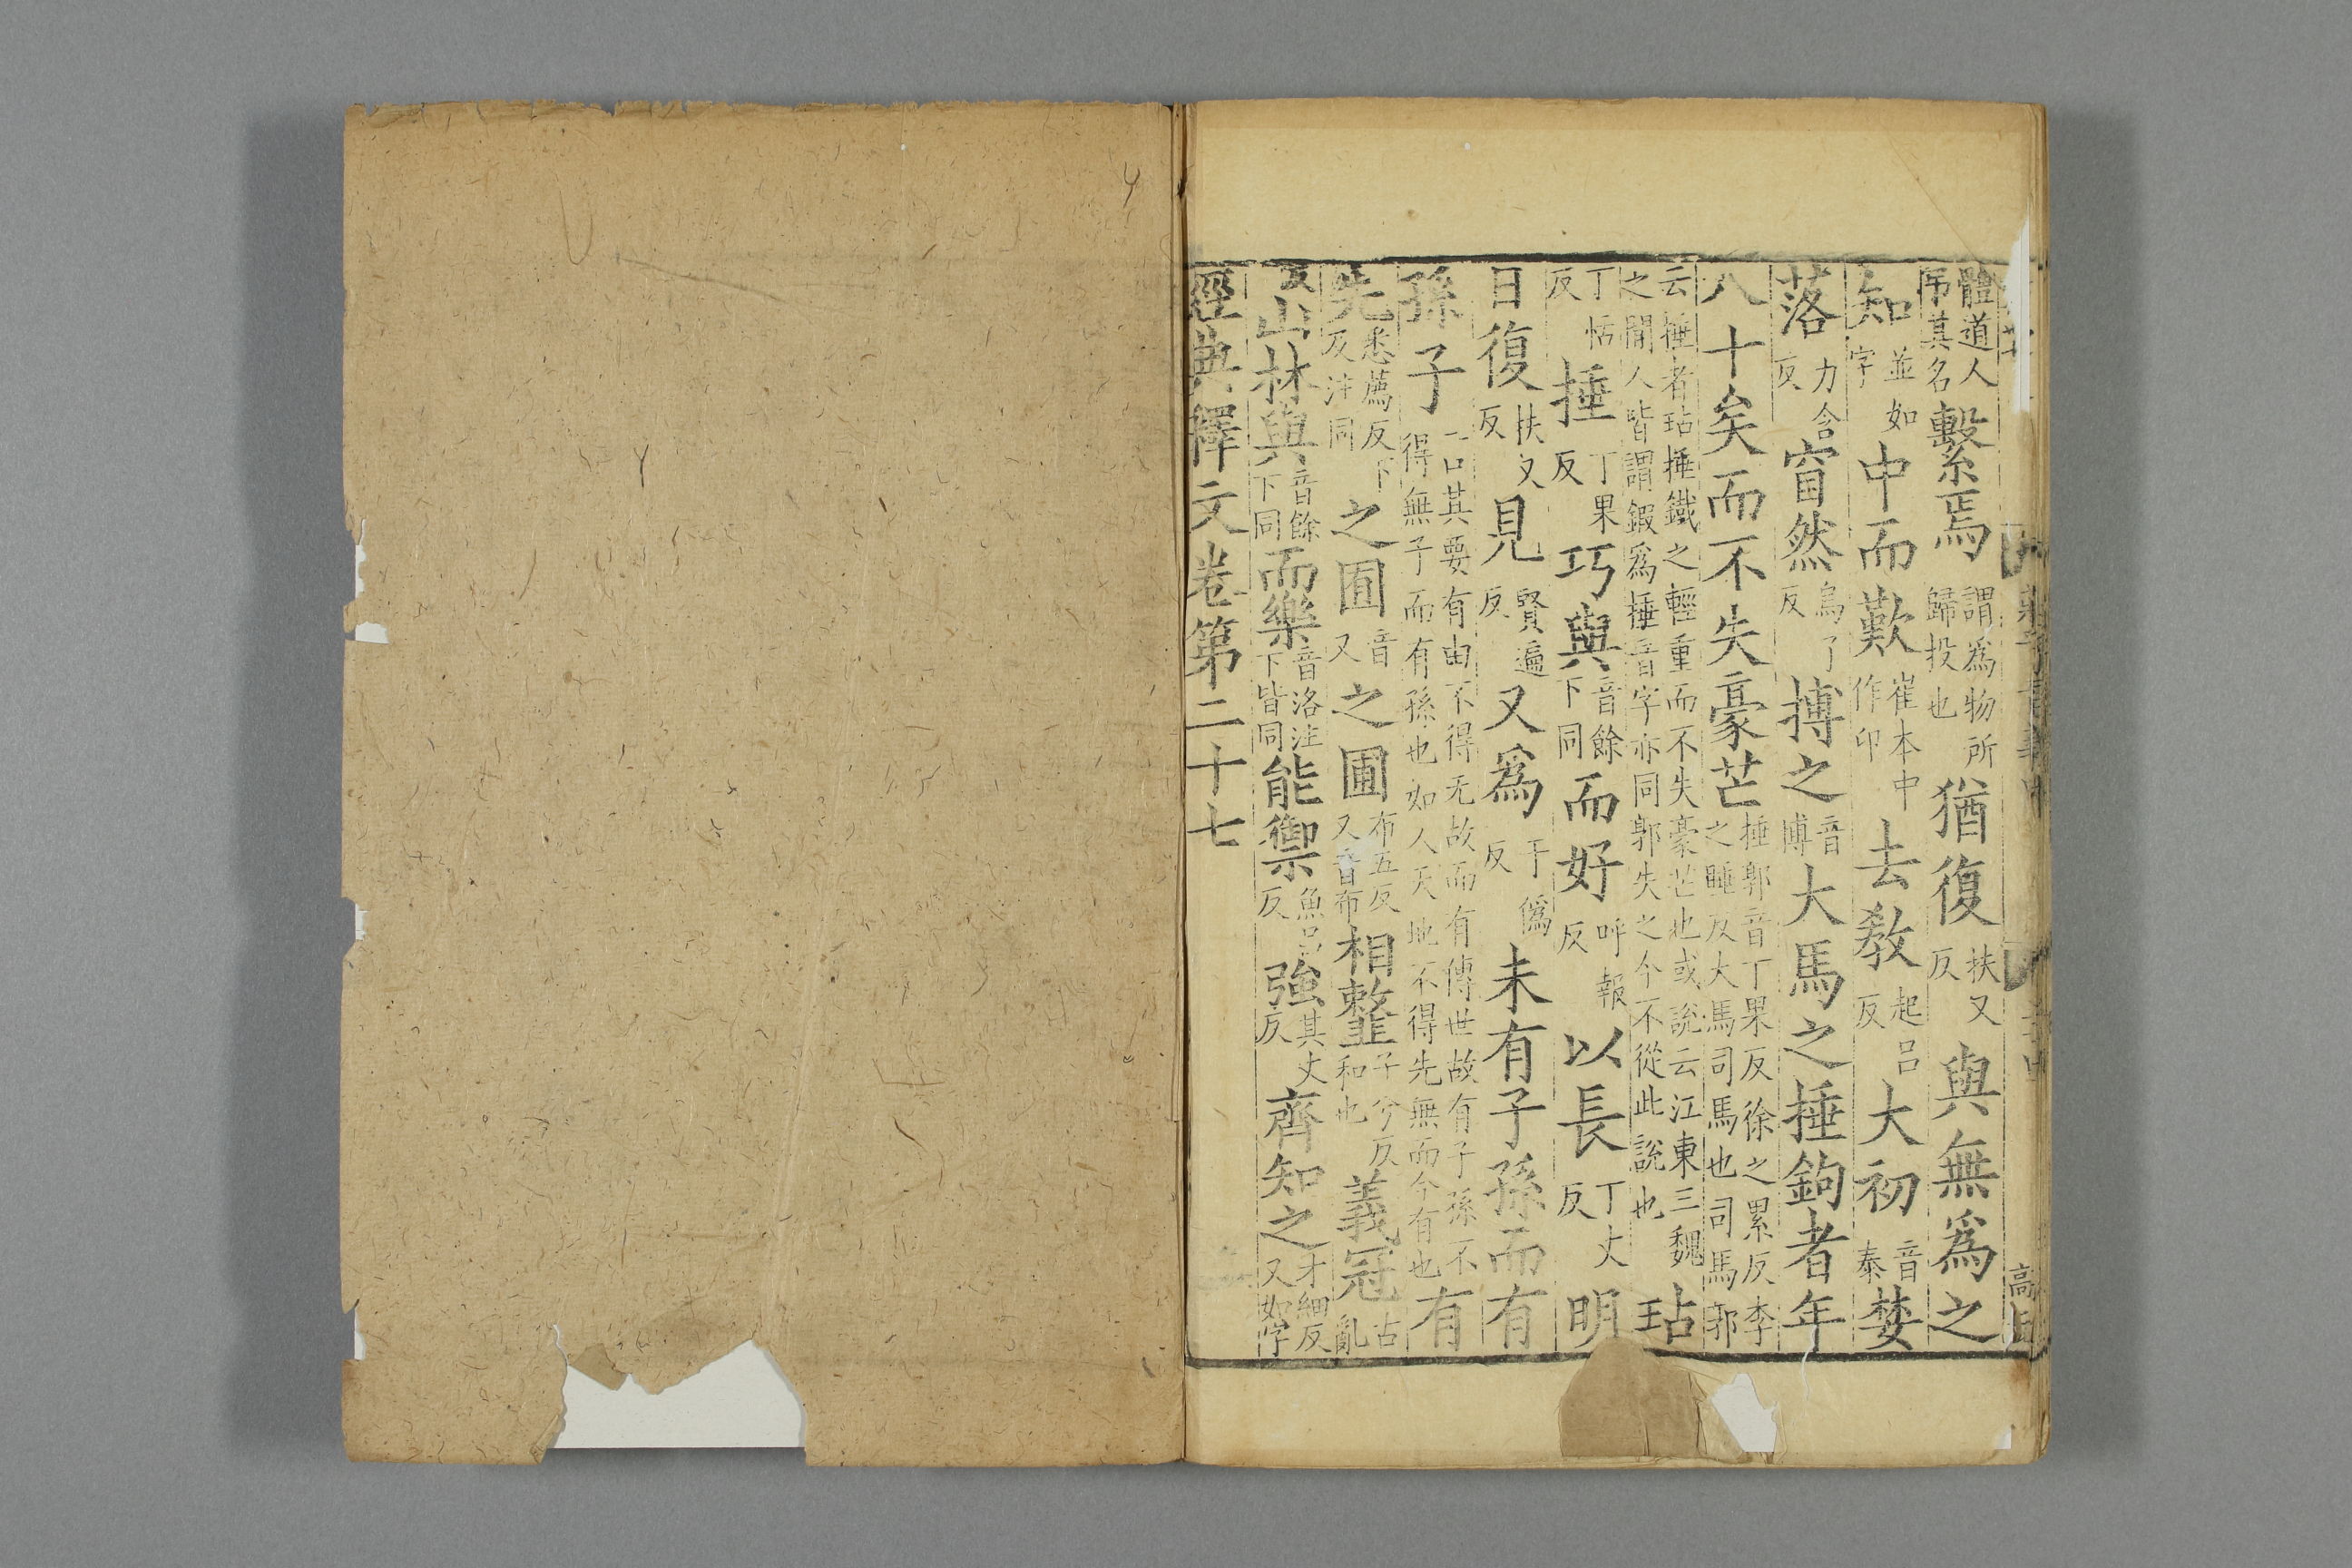 體道人繫焉謂爲物所猶復扶又與無爲之
吊其名歸投也反
知並如字中而歎崔本中作卬去教起呂反大初音泰婪
落力含反窅然烏了反搏之音博大馬之捶鉤者年
八十矣而不失豪芒捶郭音丁果反徐之累反李之睡反大馬司馬也司馬郭
云捶者玷捶鐵之輕重而不失豪芒也或說云江東三魏之間人皆謂鍜爲捶音字亦同郭失之今不從此說也玷
丁恬反捶丁果反巧與音餘下同而好呼報反以長丁丈反明
日復扶又反見賢遍反又爲于僞反未有子孫而有
孫子一口其要有由不得无故而有傳世故有子孫不得無子而有孫也如人天地不得先無而今有也有
先悉薦反下及注同之囿音又之圃布五反又音布相𩐎子兮反和也義冠古亂
反山林與音餘下同而樂音洛注下皆同能禦魚呂反強其丈反齊知之才細反又如字
經典釋文卷第二十七